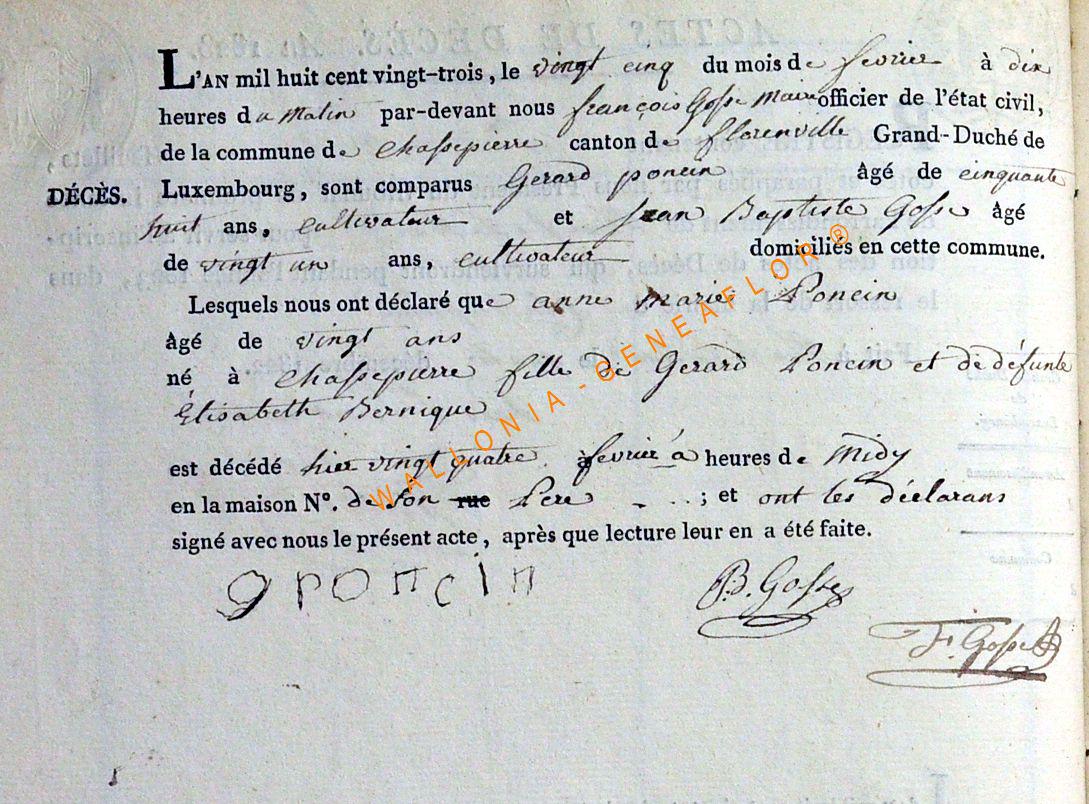 L'AN mil huit cent vingt-trois, le vingt cinq du mois de fevrier à dix
heures du Matin par-devant nous françois Gosse Maire officier de l'état civil,
de la commune de Chassepierre canton de florenville Grand-Duché de
DÉCÈS. Luxembourg, sont comparus Gerard poncin âgé de cinquante
huit ans, cultivateur et Jean Baptiste Gosse âgé
de vingt un ans, cultivateur domiciliés en cette commune.
Lesquels nous ont déclaré que anne marie Poncin
âgé de vingt ans
né à Chassepierre fille de Gerard Poncin et de défunte
Élisabeth Bernique
est décédé hier vingt quatre fevrier à heures de Midy
en la maison N°. de son rue Pere ; et ont les déclarans
signé avec nous le présent acte, après que lecture leur en a été faite.
g poncin B. Gosse
F. Gosse
WALLONIA - GENEAFLOR ®